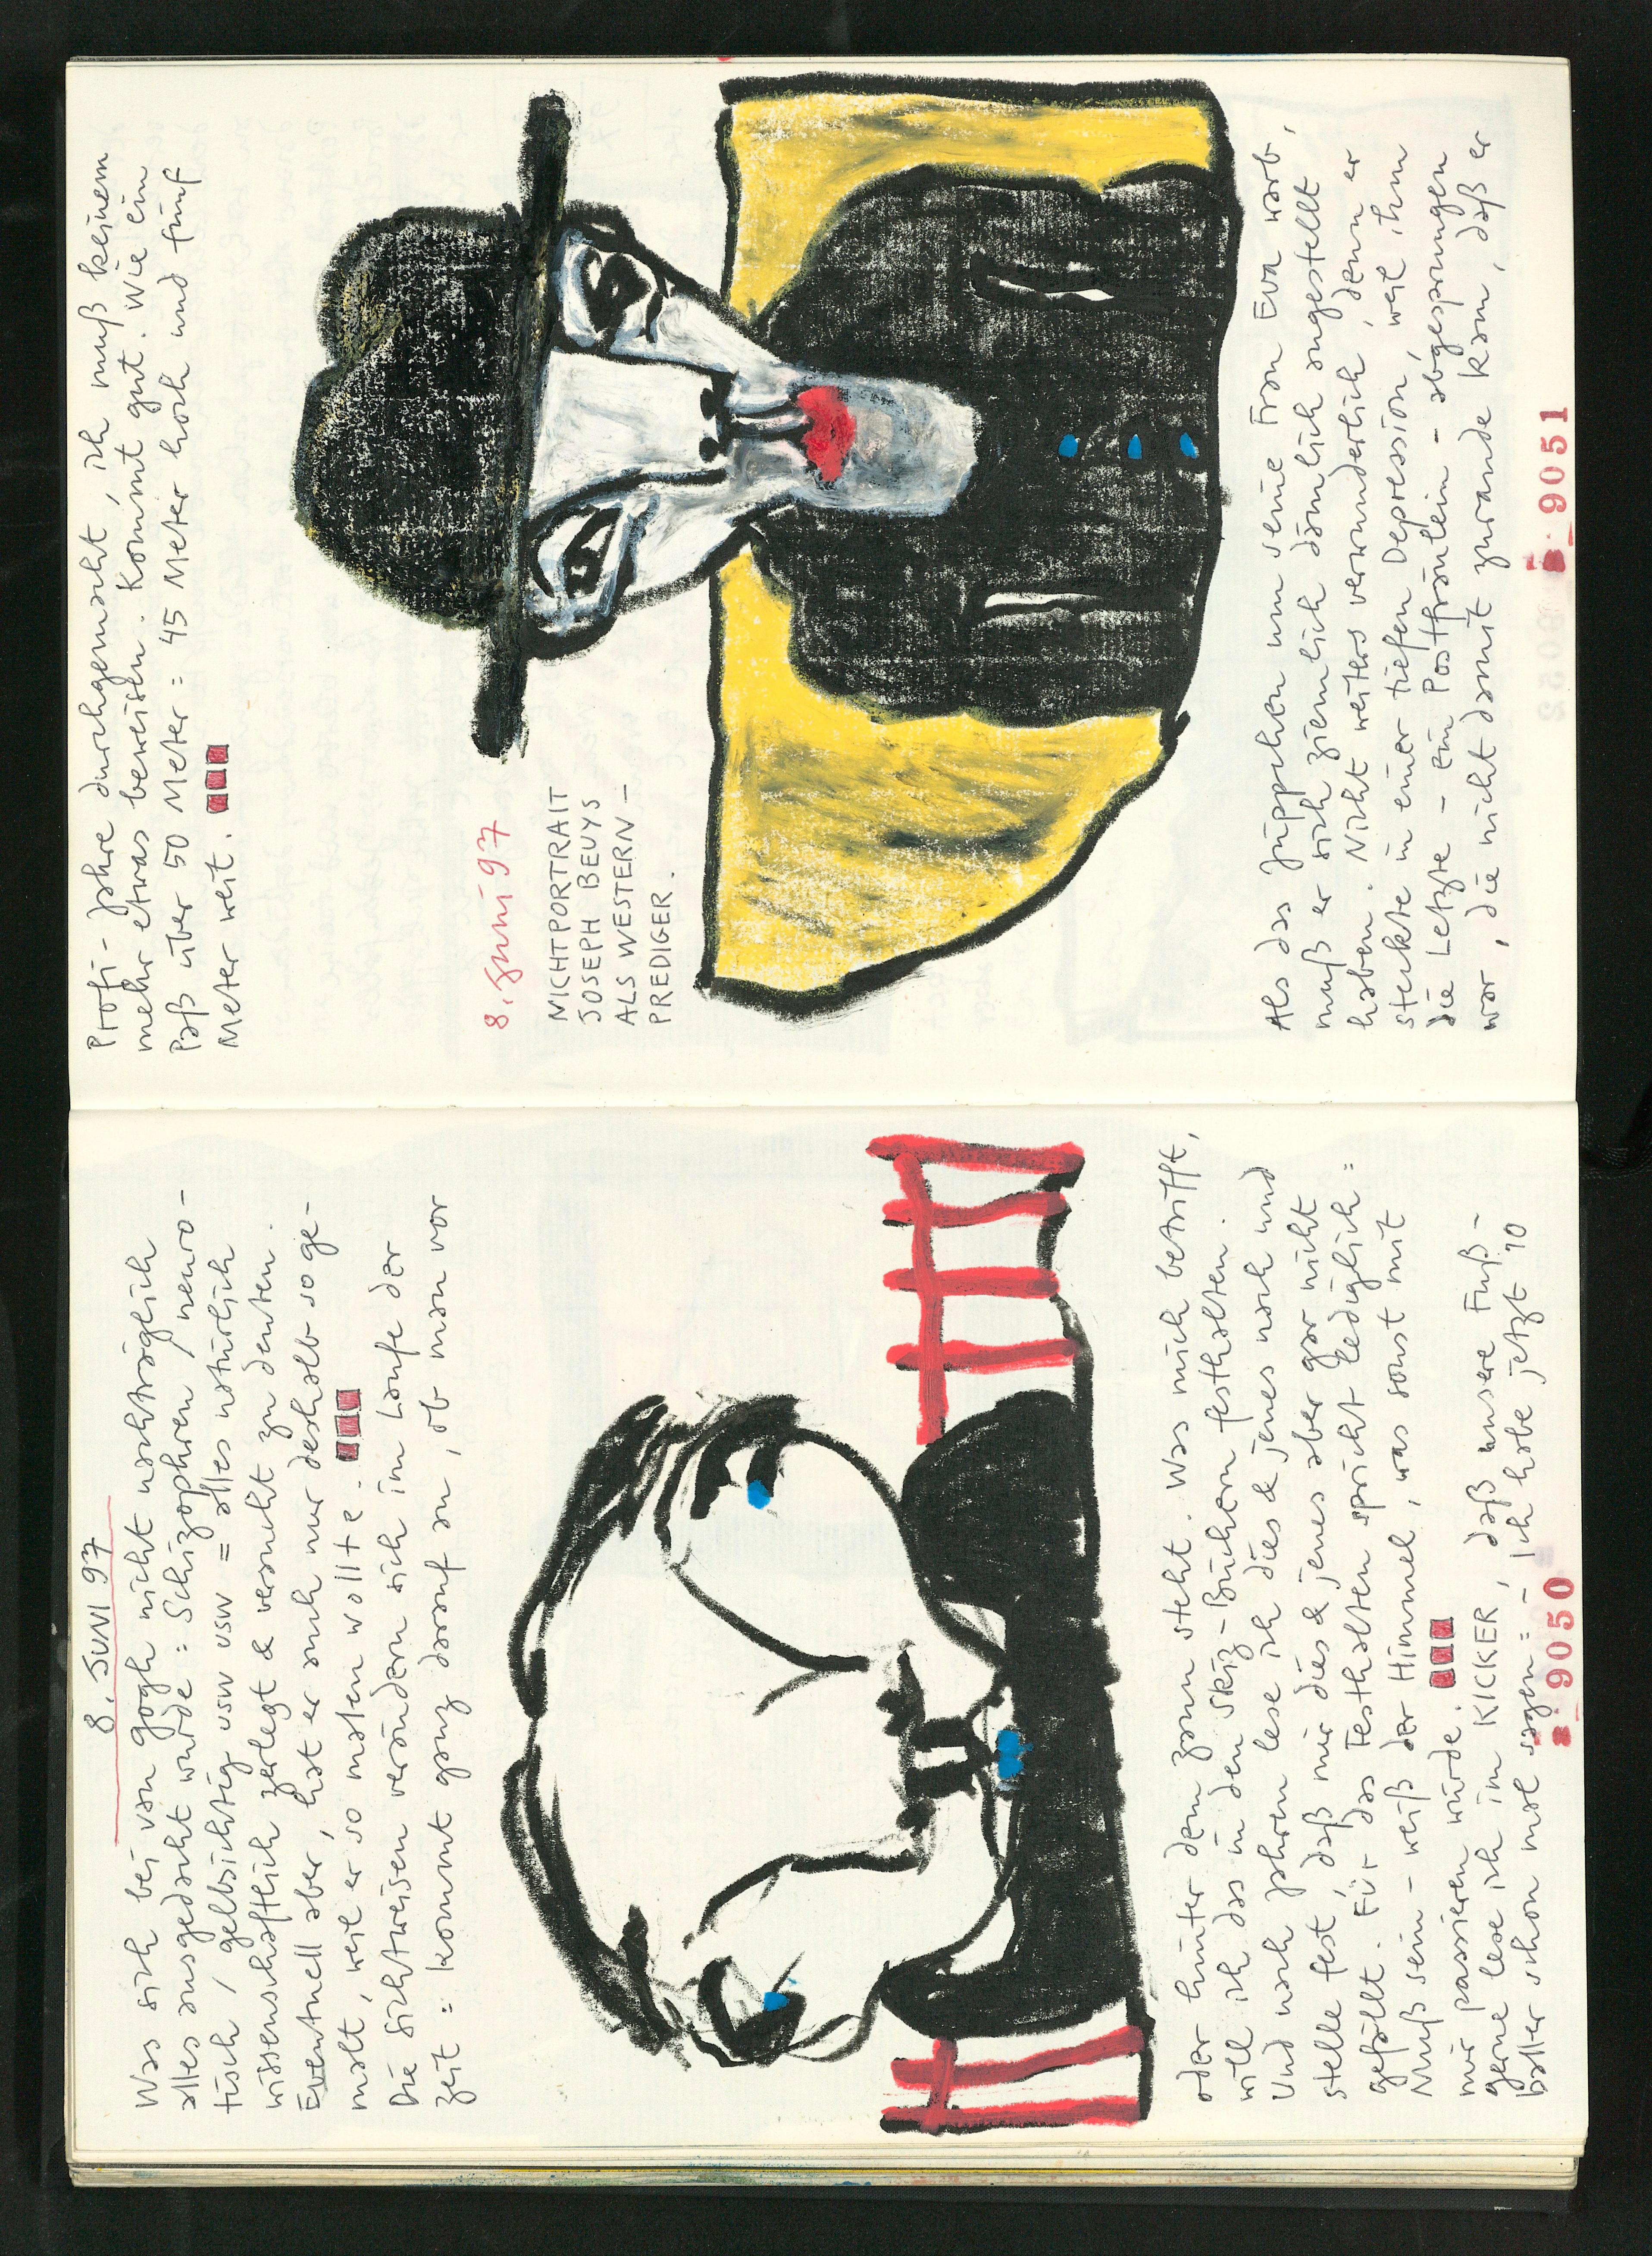 8. JUNI 97
Was sich bei van gogh nicht nachträglich
alles ausgedacht wurde = Schizophren / neuro-
tisch / gelbsichtig usw usw = alles natürlich
wissenschaftlich zerlegt & versucht zu deuten.
Eventuell aber, hat er auch nur deshalb so ge-
malt, weil er so malen wollte.
Die Sichtweisen verändern sich im Laufe der
Zeit = kommt ganz darauf an, ob man vor
oder hinter dem Zaun steht. Was mich betrifft,
will ich das in den Skiz-Büchern festhalten.
Und nach Jahren lese ich dies & jenes nach und
stelle fest, daß mir dies & jenes aber gar nicht
gefällt. Für das Festhalten spricht lediglich =
Muß sein - weiß der Himmel, was sonst mit
mir passieren würde.
gerne lese ich im KICKER, daß unsere Fuß-
baller schon mal sagen = - Ich habe jetzt 10
9050
Profi-Jahre durchgemacht, ich muß keinem
mehr etwas beweisen. Kommt gut. Wie ein
Paß über 50 Meter = 45 Meter hoch und fünf
Meter weit.
8. Juni 97
NICHTPORTRAIT
JOSEPH BEUYS
ALS WESTERN-
PREDIGER.
Als das Jüppchen um seine Frau Eva warb,
muß er sich ziemlich dämlich angestellt
haben. Nicht weiters verwunderlich, denn er
steckte in einer tiefen Depression, weil ihm
die Letzte - ein Postfräulein - abgesprungen
war, die nicht damit zurande kam, daß er
9051